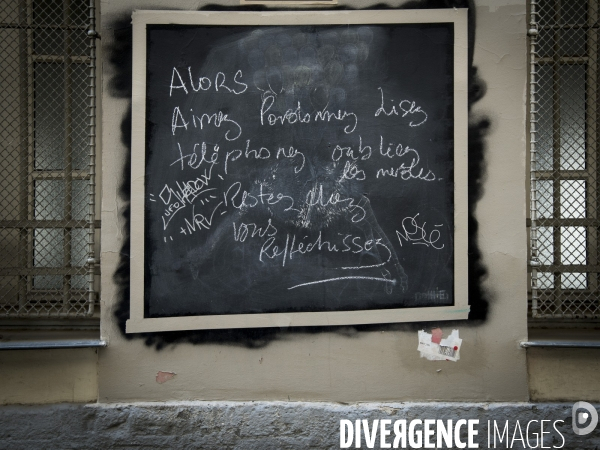 Alors
Aimez Pardonnez Lisez
téléphonez oubliez
les merdes.
Restez chez
vous
Réflechissez
DIVERGENCE IMAGES